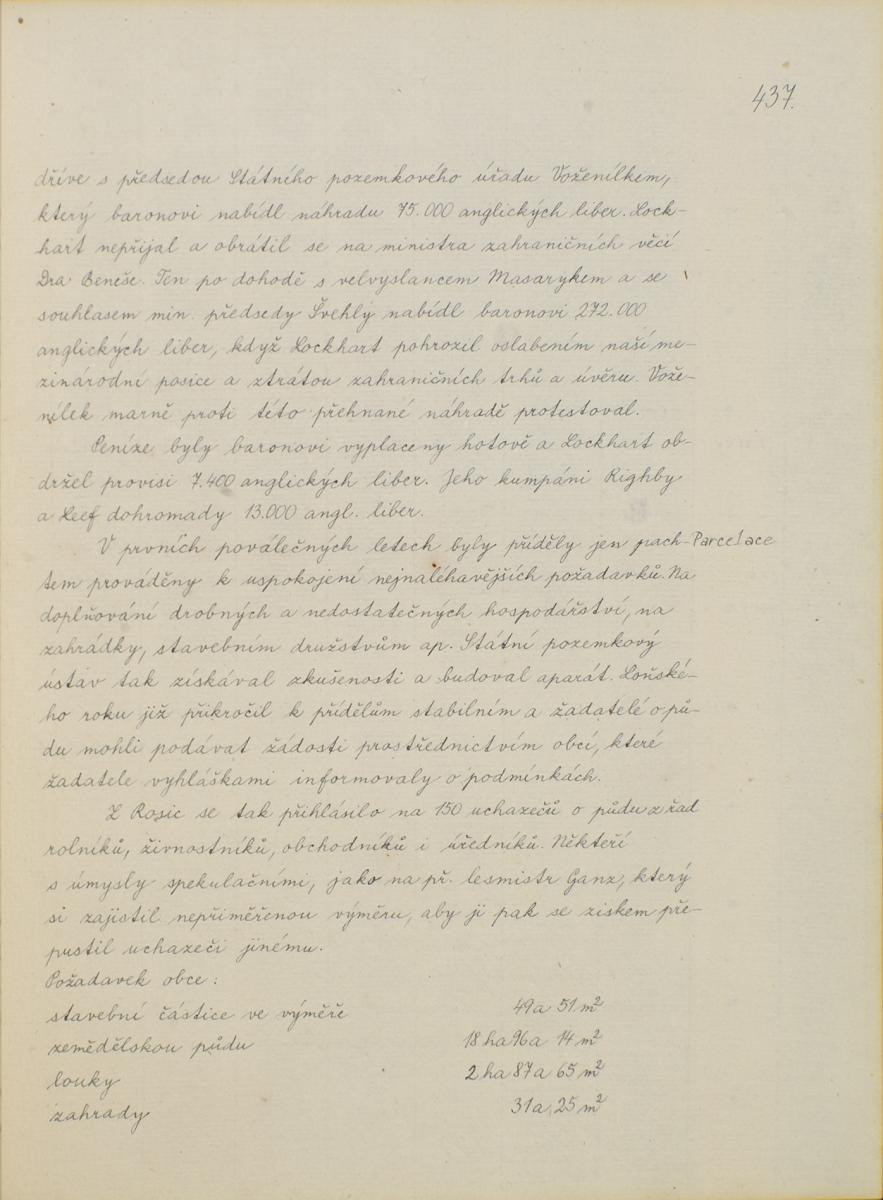 437.
dříve s předsedou Státního pozemkového úřadu Voženílkem,
který baronovi nabídl náhradu 75.000 anglických liber. Lock-
hart nepřijal a obrátil se na ministra zahraničních věcí
Dra Beneše. Ten po dohodě s velvyslancem Masarykem a se
souhlasem min. předsedy Švehly nabídl baronovi 272.000
anglických liber, když Lockhart pohrozil oslabením naší me-
zinárodní posice a ztrátou zahraničních trhů a úvěru. Vože-
nílek marně proti této přehnané náhradě protestoval.
Peníze byly baronovi vyplaceny hotově a Lockhart ob-
držel provisi 7.400 anglických liber. Jeho kumpáni Righby
a Leef dohromady 13.000 angl. liber.
V prvních poválečných letech byly příděly jen pach- Parcelace
tem prováděny k uspokojení nejnaléhavějších požadavků. Na
doplňování drobných a nedostatečných hospodářství, na
zahrádky, stavebním družstvům ap. Státní pozemkový
ústav tak získával zkušenosti a budoval aparát. Loňské-
ho roku již přikročil k přídělům stabilním a žadatelé o pů-
du mohli podávat žádosti prostřednictvím obcí, které
žadatele vyhláškami informovaly o podmínkách.
Z Rosic se tak přihlásilo na 150 uchazečů o půdu z řad
rolníků, živnostníků, obchodníků i úředníků. Někteří
s úmysly spekulačními, jako na př. lesmistr Ganz, který
si zajistil nepřiměřenou výměru, aby ji pak se ziskem pře-
pustil uchazeči jinému.
Požadavek obce:
stavební částice ve výměře 49a 51 m²
zemědělskou půdu 18 ha 96a 14 m²
louky 2 ha 87a 65 m²
zahrady 31a 25 m²